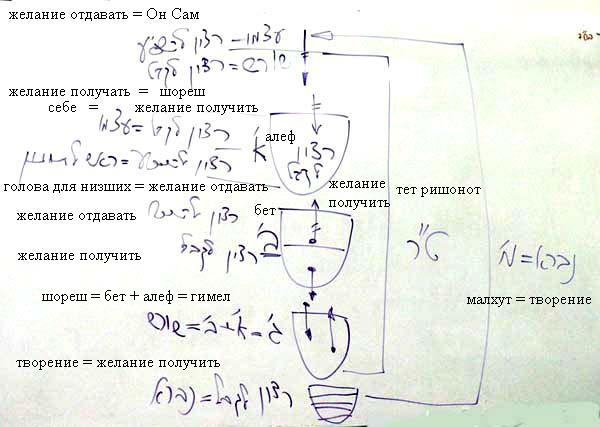 желание отдавать = Он Сам
עצמו – רצון להשפיע
שורש = רצון לקבל
желание получать = шореш
себе = желание получить
רצון לקבל = עצמו
алеф
א'
רצון לקבל
голова для низших = желание отдавать
желание получить
тет ришонот
желание отдавать
бет
ב'
желание получить
רצון לקבל
ט"ר
נברא = מ'
шореш = бет + алеф = гимел
малхут = творение
ג' = א' + ב' = שורש
творение = желание получить
רצון לקבל = נברא